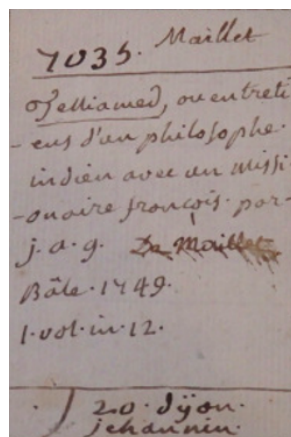 7035. Maillet
Telliamed, ou entreti
- ens d'un philosophe
indien avec un missi
- onaire françois. par
j. a. g. De Maillet
Bâle. 1749.
1. vol. in. 12.
20. Dijon.
jehannin.